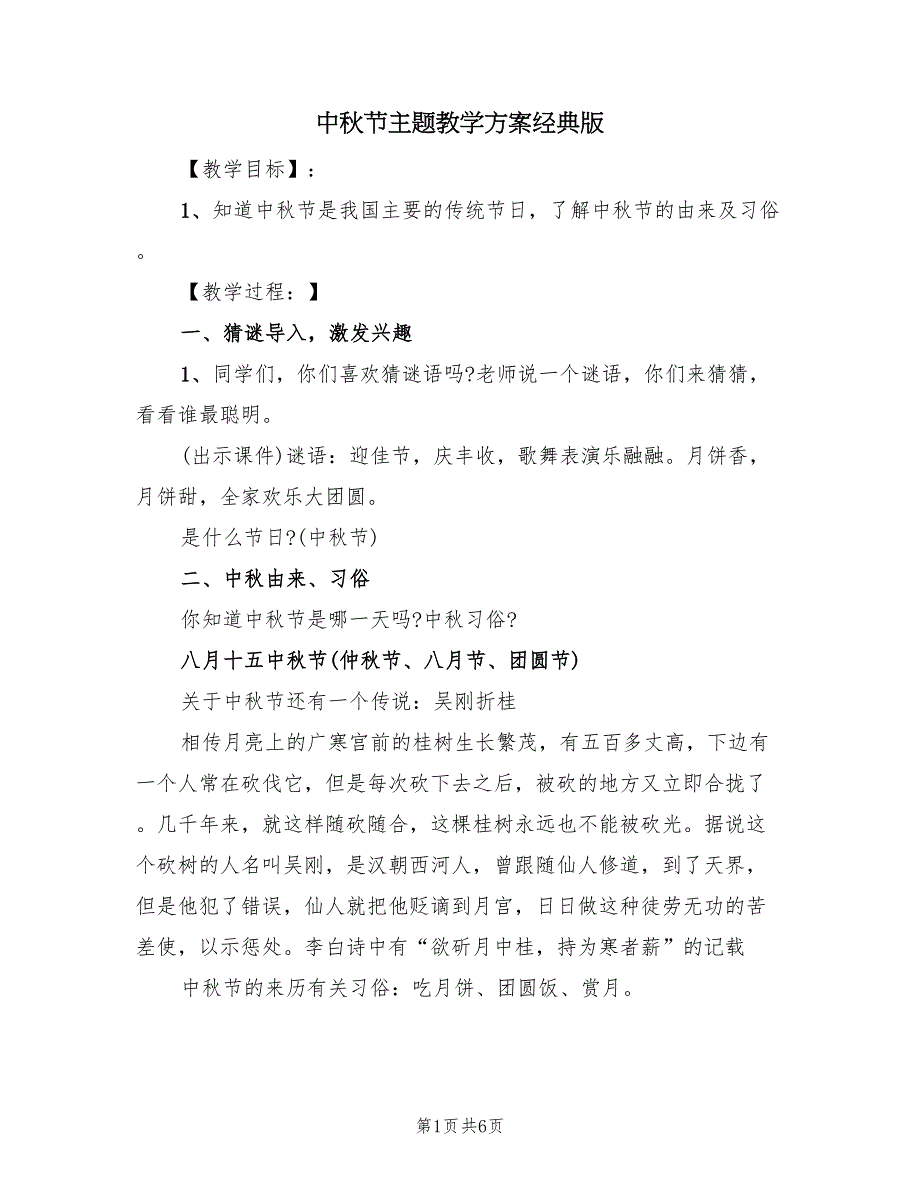 中秋节主题教学方案经典版
【教学目标】：
1、知道中秋节是我国主要的传统节日，了解中秋节的由来及习俗
。
【教学过程：】
一、猜谜导入，激发兴趣
1、同学们，你们喜欢猜谜语吗?老师说一个谜语，你们来猜猜，
看看谁最聪明。
(出示课件)谜语：迎佳节，庆丰收，歌舞表演乐融融。月饼香，
月饼甜，全家欢乐大团圆。
是什么节日?(中秋节)
二、中秋由来、习俗
你知道中秋节是哪一天吗?中秋习俗?
八月十五中秋节(仲秋节、八月节、团圆节)
关于中秋节还有一个传说：吴刚折桂
相传月亮上的广寒宫前的桂树生长繁茂，有五百多丈高，下边有
一个人常在砍伐它，但是每次砍下去之后，被砍的地方又立即合拢了
。几千年来，就这样随砍随合，这棵桂树永远也不能被砍光。据说这
个砍树的人名叫吴刚，是汉朝西河人，曾跟随仙人修道，到了天界，
但是他犯了错误，仙人就把他贬谪到月宫，日日做这种徒劳无功的苦
差使，以示惩处。李白诗中有“欲斫月中桂，持为寒者薪”的记载
中秋节的来历有关习俗：吃月饼、团圆饭、赏月。
第1页共6页